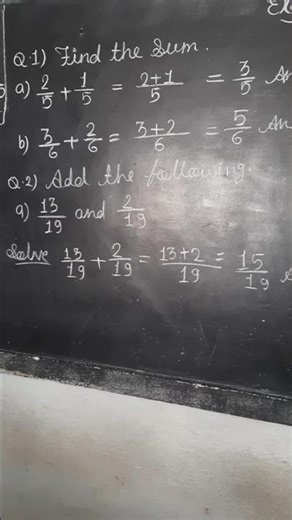 Q.1) Find the Sum.
a) 2/5 + 1/5 = 2+1/5 = 3/5 An
b) 3/6 + 2/6 = 3+2/6 = 5/6 An
Q.2) Add the following.
a) 13/19 and 2/19
Solve 13/19 + 2/19 = 13+2/19 = 15/19